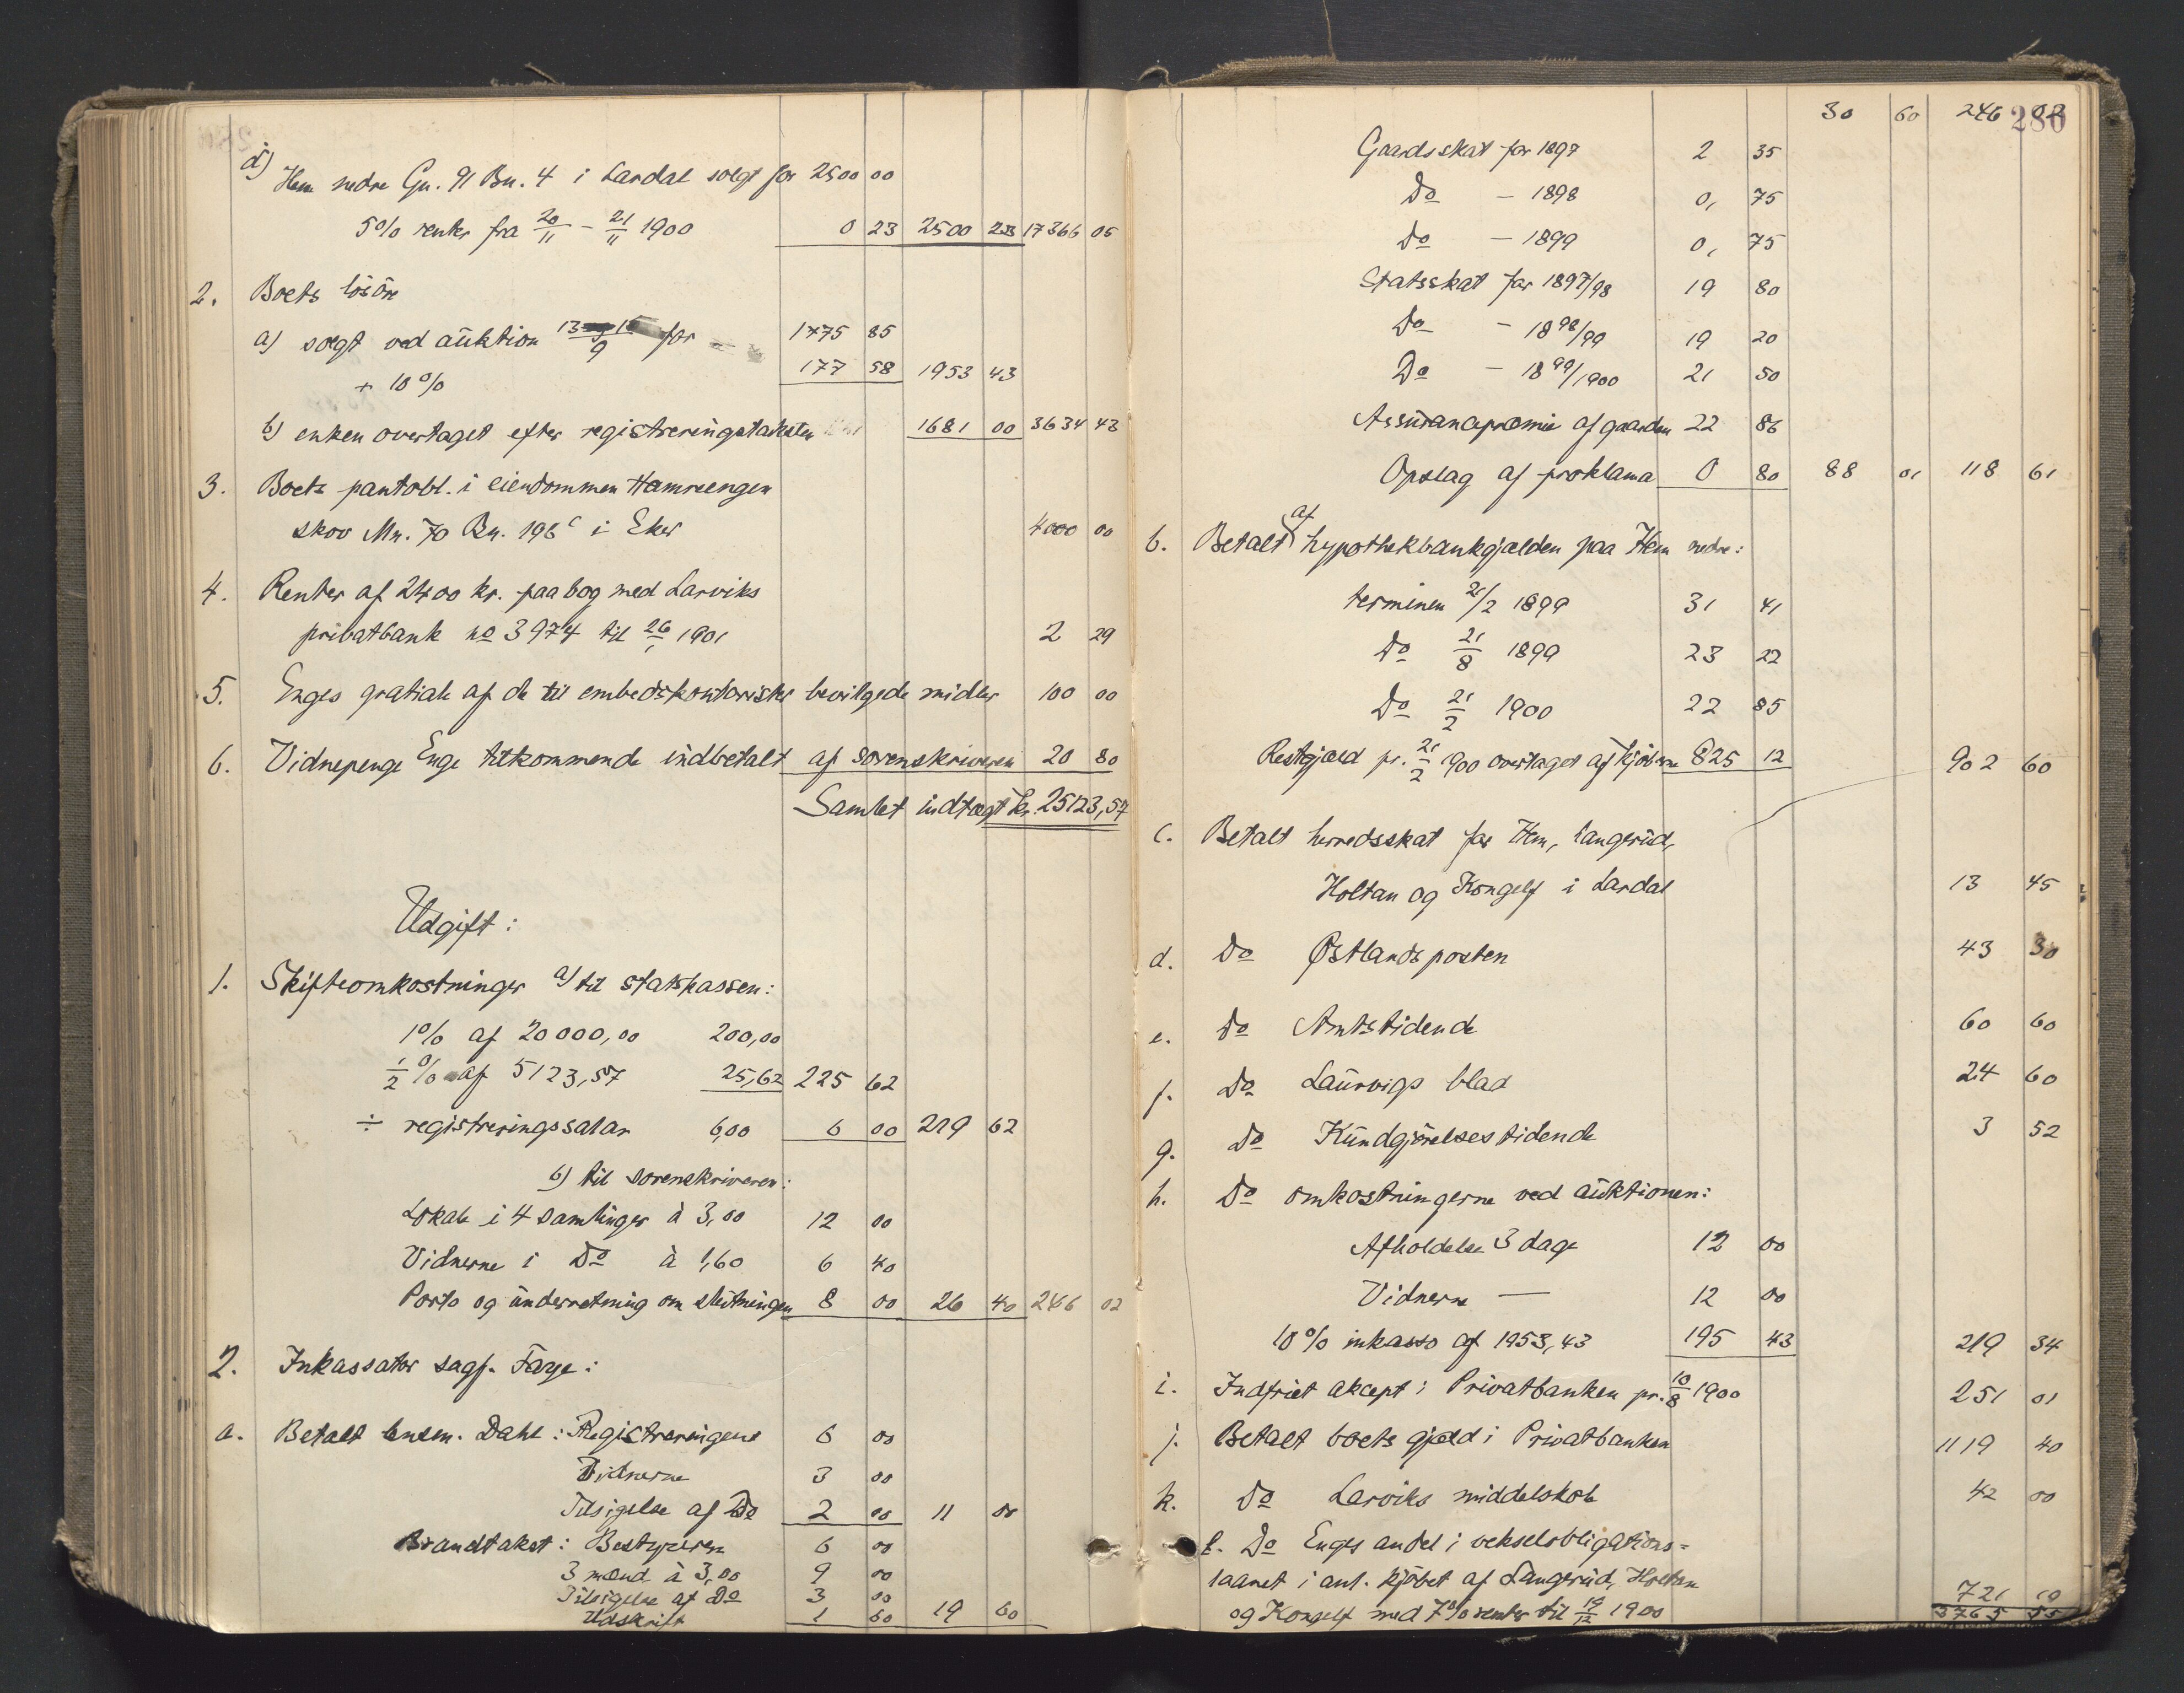 d) Hem nedre Gn. 91 Bn. 4 i Lardal solgt for 2500 00
5% renter fra 20/11 – 21/11 1900 0 23 2500 23 17366 05
2. Boets lösöre
a) solgt ved auktion 13–15/9 for 1775 85
+ 10% 177 58 1953 43
b) enken overtaget efter registreringstaksten 1681 00 3634 43
3. Boets pantobl. i eiendommen Hamreengen
skov Mn. 70 Bn. 198c i Eker 4000 00
4. Renter af 2400 kr. paa bog med Larviks
privatbank no 3974 til 26/1 1901 2 29
5. Enges gratiale af de til embedskontorister bevilgede midler 100 00
6. Vidnepenge Enge tilkommende indbetalt af sorenskriveren 20 80
Samlet indtægt kr. 25123,57
Udgift:
1. Skifteomkostninger a) til statskassen:
1% af 20000,00 200,00
1/2 % af 5123,57 25,62 225 62
÷ registreringssalar 6,00 6 00 219 62
b) til sorenskriveren:
Lokale i 4 samlinger à 3,00 12 00
Vidnerne i Do à 1,60 6 40
Porto og underretning om slutningen 8 00 26 40 246 02
2. Inkassator sagf. Farge:
a. Betalt lensm. Dahl: Registreringene 6 00
Vidnerne 3 00
Tilsigelse af Do 2 00 11 00
Brandtakst: Bestyreren 6 00
3 mænd à 3,00 9 00
Tilsigelse af Do 3 00
Udskrift 1 60 19 60
280
30 60 246 02
Gaardsskat for 1897 2 35
Do – 1898 0, 75
Do – 1899 0, 75
Statsskat for 1897/98 19 80
Do – 1898/99 19 20
Do – 1899/1900 21 50
Assurancepræmie af gaarden 22 86
Opslag af proklama 0 80 88 01 118 61
b. Betalt af hypothekbankgjælden paa Hem nedre:
terminen 21/2 1899 31 41
Do 21/8 1899 23 22
Do 21/2 1900 22 85
Restgjæld pr. 21/2 1900 overtaget af kjöberne 825 12 902 60
c. Betalt herredsskat for Hem, Langerud,
Holtan og Kongelf i Lardal 13 45
d. Do Østlandsposten 43 30
e. Do Amtstidende 60 60
f. Do Laurvigs blad 24 60
g. Do Kundgjörelsestidende 3 52
h. Do omkostningerne ved auktionen:
Afholdelse 3 dage 12 00
Vidnerne — 12 00
10% inkasso af 1953,43 195 43 219 34
i. Indfriet akcept i Privatbanken pr. 10/8 1900 251 01
j. Betalt boets gjæld i Privatbanken 1119 40
k. Do Larviks middelskole 42 00
l. Do Enges andel i vekselobligations=
laanet i anl. kjöbet af Langerud, Holtan
og Kongelf med 7% renter til 19/12 1900 721 10
3765 55